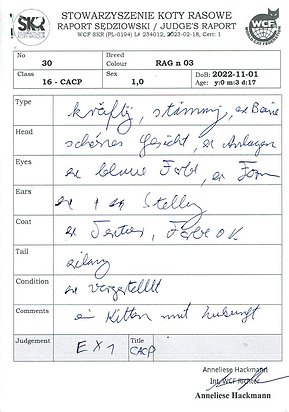 STOWARZYSZENIE KOTY RASOWE
RAPORT SĘDZIOWSKI / JUDGE'S REPORT
WCF SKR (PL-0194) L# 234012, 2023-02-18, Cert: 1
SKR
WCF
No 30 Breed Colour RAG n 03
Class 16 - CACP Sex 1,0 DoB: 2022-11-01 Age: y:0 m:3 d:17
Type kräftig, stämmig, ex Beine
Head schönes Gesicht, ex Anlagen
Eyes ex blaue Farbe, ex Form
Ears ex + ex Stellg
Coat ex Textur, Farbe OK
Tail
Condition ex vorgestellt
Comments ein Kitten mit Zukunft
Judgement EX 1 Title CACP
Anneliese Hackmann
Int. WCF Richter
Anneliese Hackmann